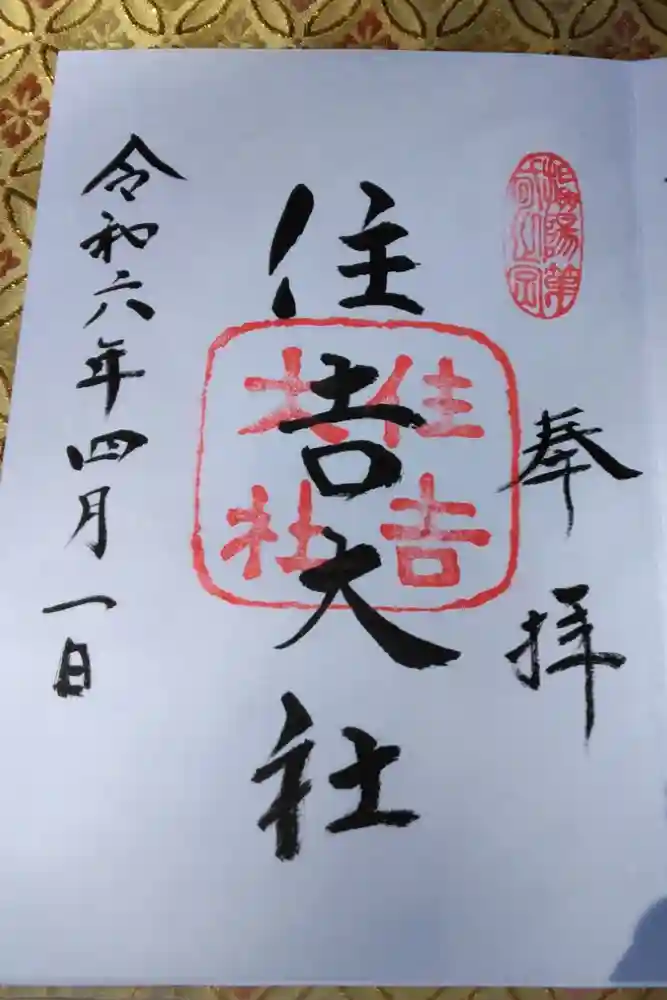 奉拝
住吉大社
住吉
大社
令和六年四月一日